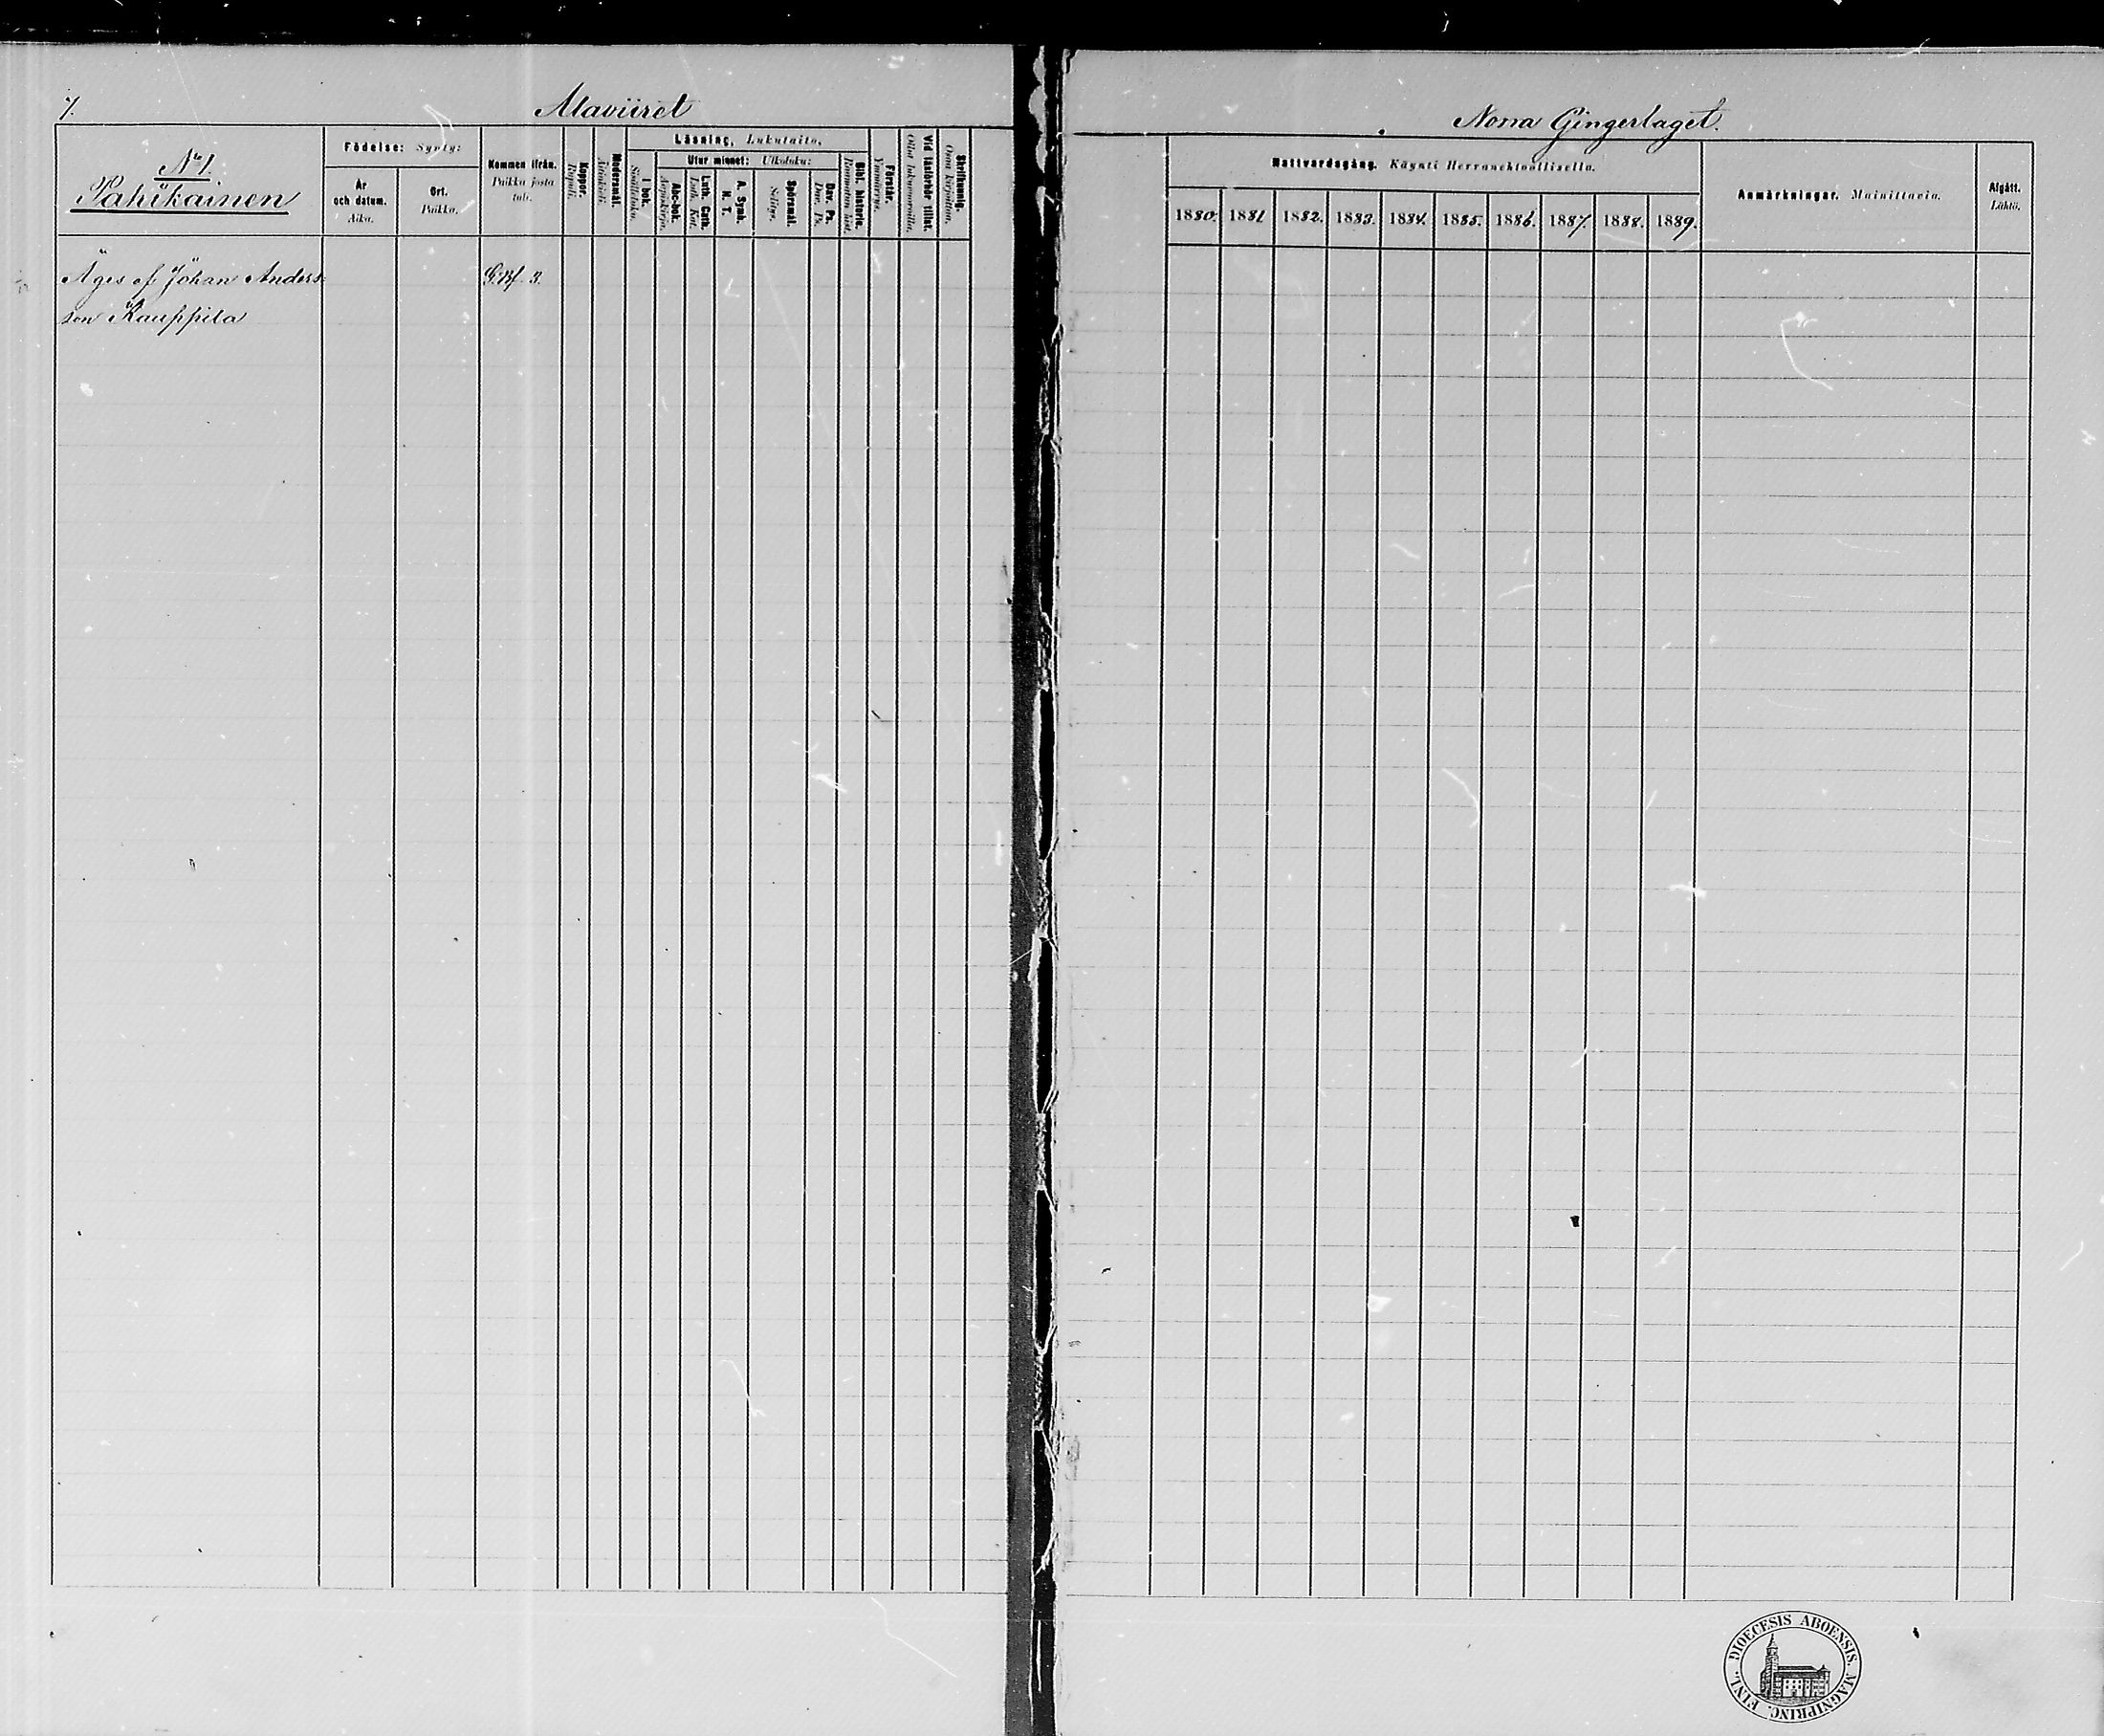 7.
Alaviiret
Nº 1.
Pahikainen
Födelse: Synty:
År och datum. Aika.
Ort. Paikka.
Kommen ifrån. Paikka josta tuli.
Koppor. Rupuli.
Modersmål.
Läsning, Lukutaito,
I bok. Sisältluku.
Utur minnet: Ulkoluku:
Abc-bok. Aapiskirja.
Luth. Cath. Luth. Kat.
A. Symb. H. T.
Spörsmål. Selitys.
Dav. Ps. Dav. Ps.
Bibl. historia.
Förstår. Ymmärrys.
Vid läsförhör tillst. Ollut lukuvuoroilla.
Skrifkunnig. Osaa kirjoittaa.
Äges af Johan Anders
son Kauppila
S. Bf. 3.
Norra Gingerlaget.
Nattvardsgång. Käynti Herranehtoollisella.
1880. 1881 1882. 1883. 1884. 1885. 1886. 1887. 1888. 1889.
Anmärkningar. Mainittavia.
Afgått. Lähtö.
DIOECESIS ABOENSIS. MAGNIPRINC. FINL.